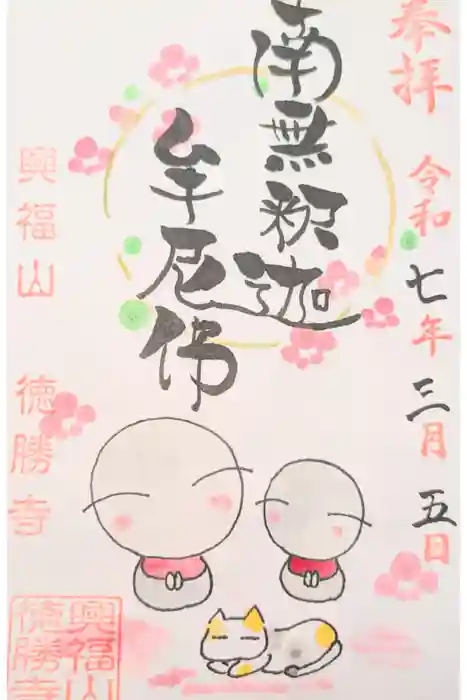 奉拝 令和七年三月五日
南無釈迦
牟尼佛
興福山 徳勝寺
興福山
徳勝寺